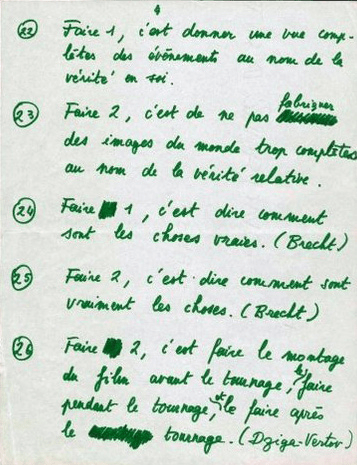 4
22 Faire 1, c'est donner une vue comp-
lètes des événements au nom de la
vérité en soi.
23 Faire 2, c'est de ne pas fabriquer
des images du monde trop complètes
au nom de la vérité relative.
24 Faire 1, c'est dire comment
sont les choses vraies. (Brecht)
25 Faire 2, c'est dire comment sont
vraiment les choses. (Brecht)
26 Faire 2, c'est faire le montage
du film avant le tournage, le faire
pendant le tournage, et le faire après
le tournage. (Dziga-Vertov)